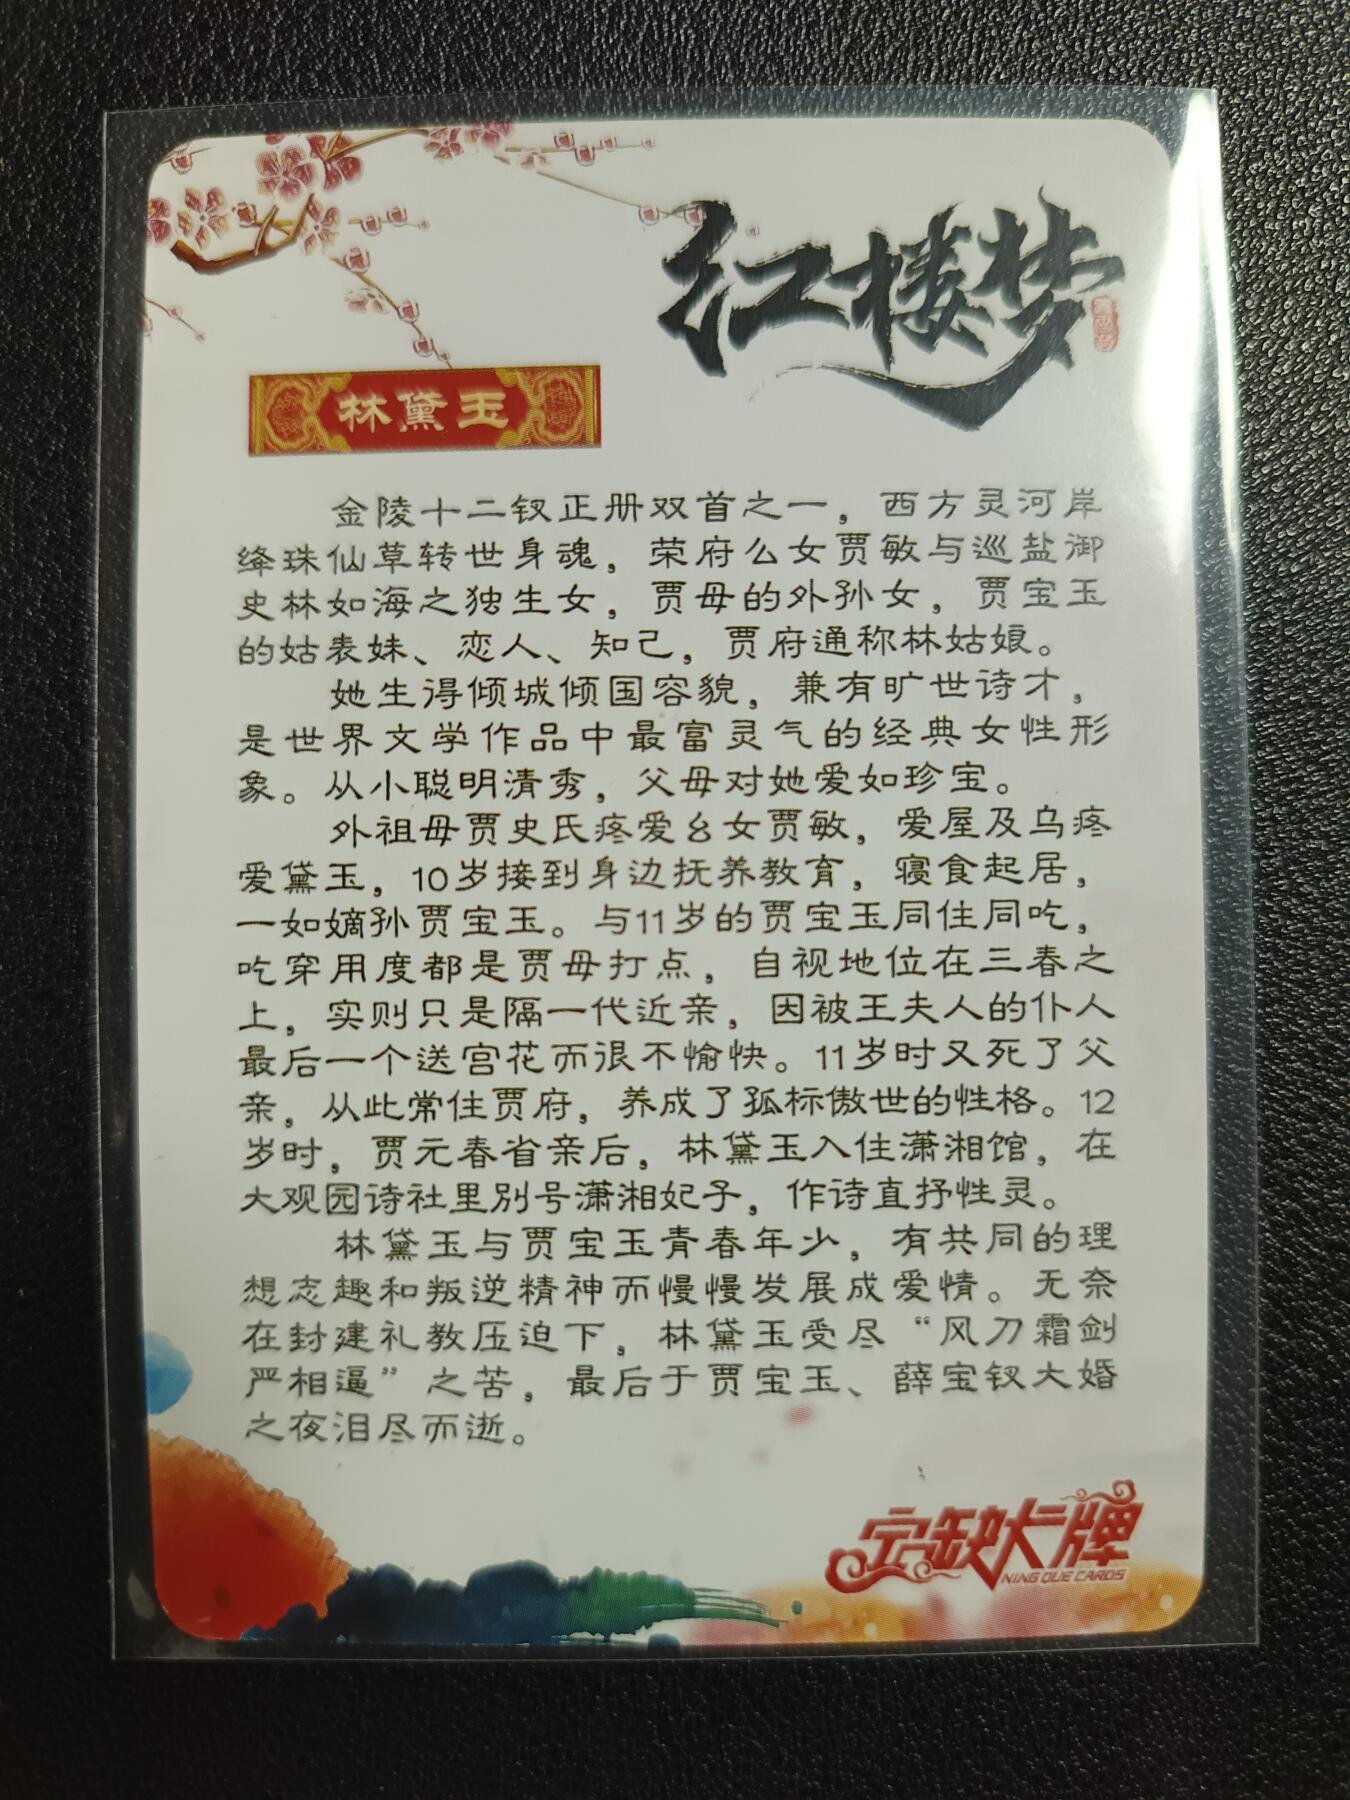 红楼梦
林黛玉
金陵十二钗正册双首之一，西方灵河岸
绛珠仙草转世身魂，荣府幺女贾敏与巡盐御
史林如海之独生女，贾母的外孙女，贾宝玉
的姑表妹、恋人、知己，贾府通称林姑娘。
她生得倾城倾国容貌，兼有旷世诗才，
是世界文学作品中最富灵气的经典女性形
象。从小聪明清秀，父母对她爱如珍宝。
外祖母贾史氏疼爱幺女贾敏，爱屋及乌疼
爱黛玉，10岁接到身边抚养教育，寝食起居，
一如嫡孙贾宝玉。与11岁的贾宝玉同住同吃，
吃穿用度都是贾母打点，自视地位在三春之
上，实则只是隔一代近亲，因被王夫人的仆人
最后一个送宫花而很不愉快。11岁时又死了父
亲，从此常住贾府，养成了孤标傲世的性格。12
岁时，贾元春省亲后，林黛玉入住潇湘馆，在
大观园诗社里别号潇湘妃子，作诗直抒性灵。
林黛玉与贾宝玉青春年少，有共同的理
想志趣和叛逆精神而慢慢发展成爱情。无奈
在封建礼教压迫下，林黛玉受尽“风刀霜剑
严相逼”之苦，最后于贾宝玉、薛宝钗大婚
之夜泪尽而逝。
宁缺大牌
NING QUE CARDS